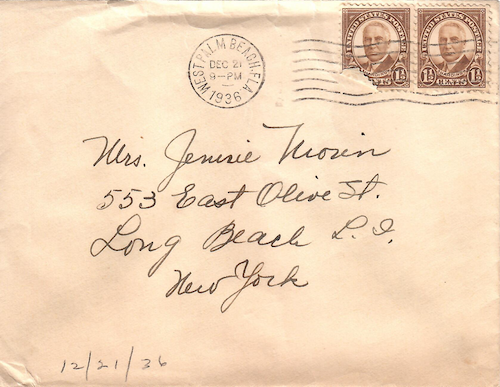 WEST PALM BEACH, FLA.
DEC 21
9-PM
1936
UNITED STATES POSTAGE
1½ CENTS 1½
UNITED STATES POSTAGE
1½ CENTS 1½
Mrs. Jennie Morin
553 East Olive St.
Long Beach L.I.
New York
12/21/36